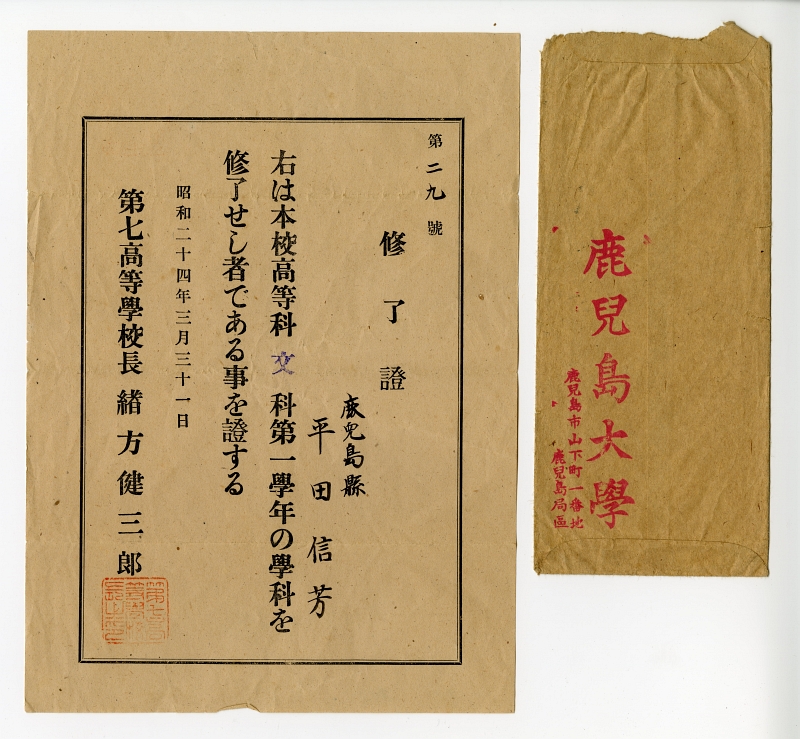 第二九號
修了證
鹿兒島縣
平田信芳
右は本校高等科文科第一學年の學科を
修了せし者である事を證する
昭和二十四年三月三十一日
第七高等學校長緒方健三郎
鹿兒島大學
鹿兒島市山下町一番地
鹿兒島局區